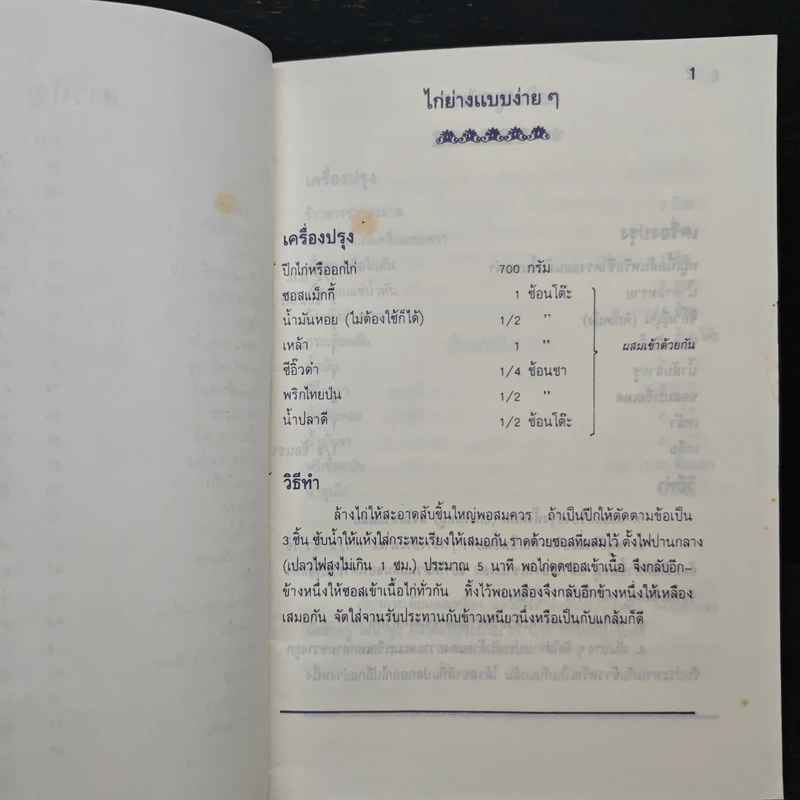 1
ไก่ย่างแบบง่าย ๆ
เครื่องปรุง
ปีกไก่หรืออกไก่ 700 กรัม
ซอสแม็กกี้ 1 ช้อนโต๊ะ
น้ำมันหอย (ไม่ต้องใช้ก็ได้) 1/2 ”
เหล้า 1 ” ผสมเข้าด้วยกัน
ซีอิ๊วดำ 1/4 ช้อนชา
พริกไทยป่น 1/2 ”
น้ำปลาดี 1/2 ช้อนโต๊ะ
วิธีทำ
ล้างไก่ให้สะอาดสับชิ้นใหญ่พอสมควร ถ้าเป็นปีกให้ตัดตามข้อเป็น
3 ชิ้น ซับน้ำให้แห้งใส่กระทะเรียงให้เสมอกัน ราดด้วยซอสที่ผสมไว้ ตั้งไฟปานกลาง
(เปลวไฟสูงไม่เกิน 1 ซม.) ประมาณ 5 นาที พอไก่ดูดซอสเข้าเนื้อ จึงกลับอีก-
ข้างหนึ่งให้ซอสเข้าเนื้อไก่ทั่วกัน ทิ้งไว้พอเหลืองจึงกลับอีกข้างหนึ่งให้เหลือง
เสมอกัน จัดใส่จานรับประทานกับข้าวเหนียวนึ่งหรือเป็นกับแกล้มก็ดี